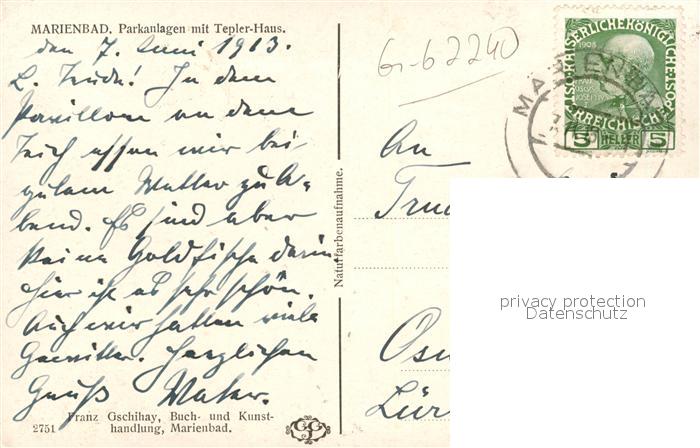 MARIENBAD. Parkanlagen mit Tepler-Haus.
den 7. Juni 1913.
L. Trude! In dem
Pavillon an dem
Teich essen wir bei
gutem Wetter zu A-
bend. Es sind aber
keine Goldfische darin.
Hier ist es sehr schön.
Auch wir hatten viele
Gewitter. Herzlichen
Gruß Vater.
Franz Gschihay, Buch- und Kunst-
2751 handlung, Marienbad.
Naturfarbenaufnahme.
Gr-b 2240
KAISERLICHE KÖNIGLICHE
1908
ÖSTERREICHISCHE POST
5 HELLER 5
MARIENBAD
An
Trud
Osn
Lür
privacy protection
Datenschutz